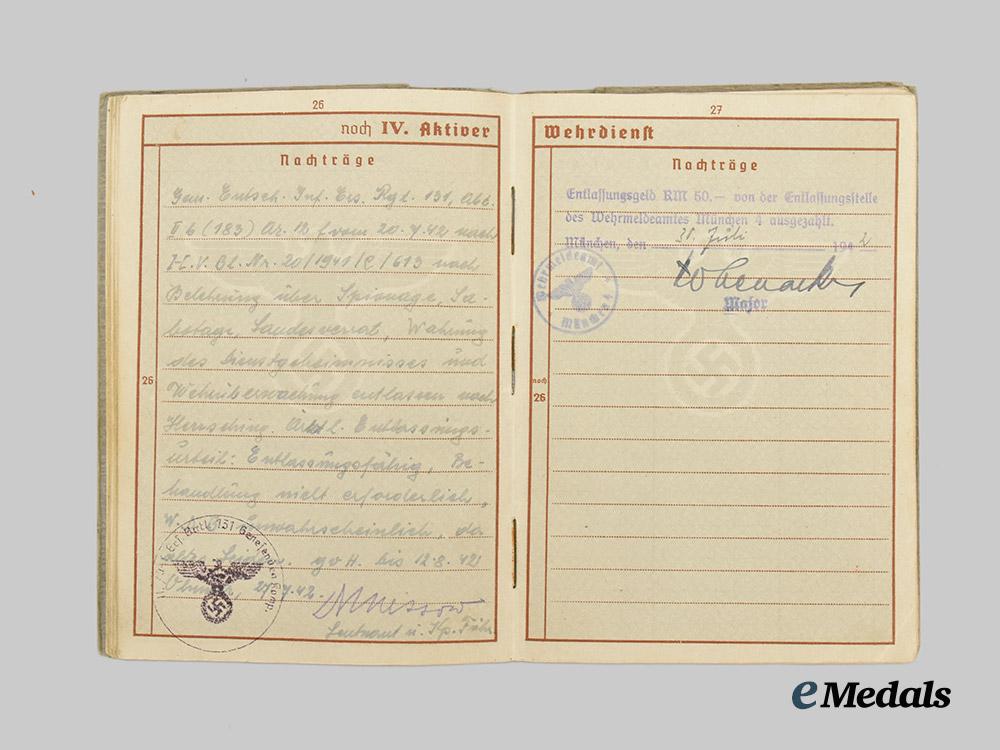 26
noch IV. Aktiver
Nachträge
Gem. Entsch. Inf. Ers. Rgt. 131, Abt.
II b (183) Az. 12 f vom 20.7.42 nach
H.V. Bl. Nr. 20/1941/C/613 nach
Belehrung über Spionage, Sa-
botage, Landesverrat, Wahrung
des Dienstgeheimnisses und
Wehrüberwachung entlassen nach
Herrsching. Ärztl. Entlassungs-
urteil: Entlassungsfähig, Be-
handlung nicht erforderlich,
unwahrscheinlich, da
gvH. bis 12.8.42
27.7.42.
Leutnant u. Kp. Führ.
26
131 Genesenden Komp.
27
Wehrdienst
Nachträge
Entlassungsgeld RM 50.— von der Entlassungsstelle
des Wehrmeldeamtes München 4 ausgezahlt.
München, den 31. Juli 1942
Major
Wehrmeldeamt München 4
noch
26
eMedals